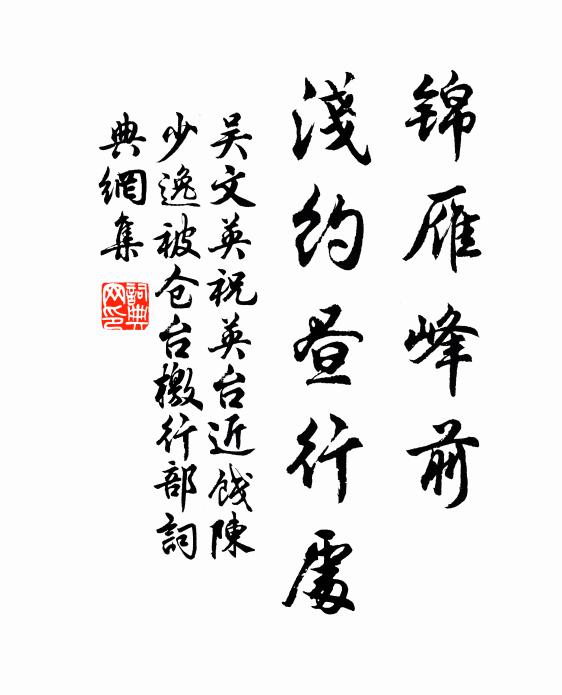 锦雁峰前
淺約昼行處
吴文英祝英台近餞陳
少逸被仓台檄行部詞
典網集
詞典网印